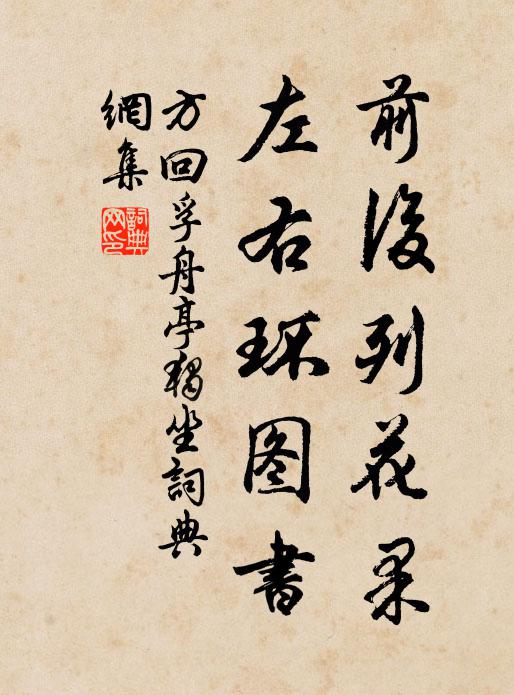 前後列花果
左右环图書
方回孚舟亭獨坐詞典
網集
詞典
网印